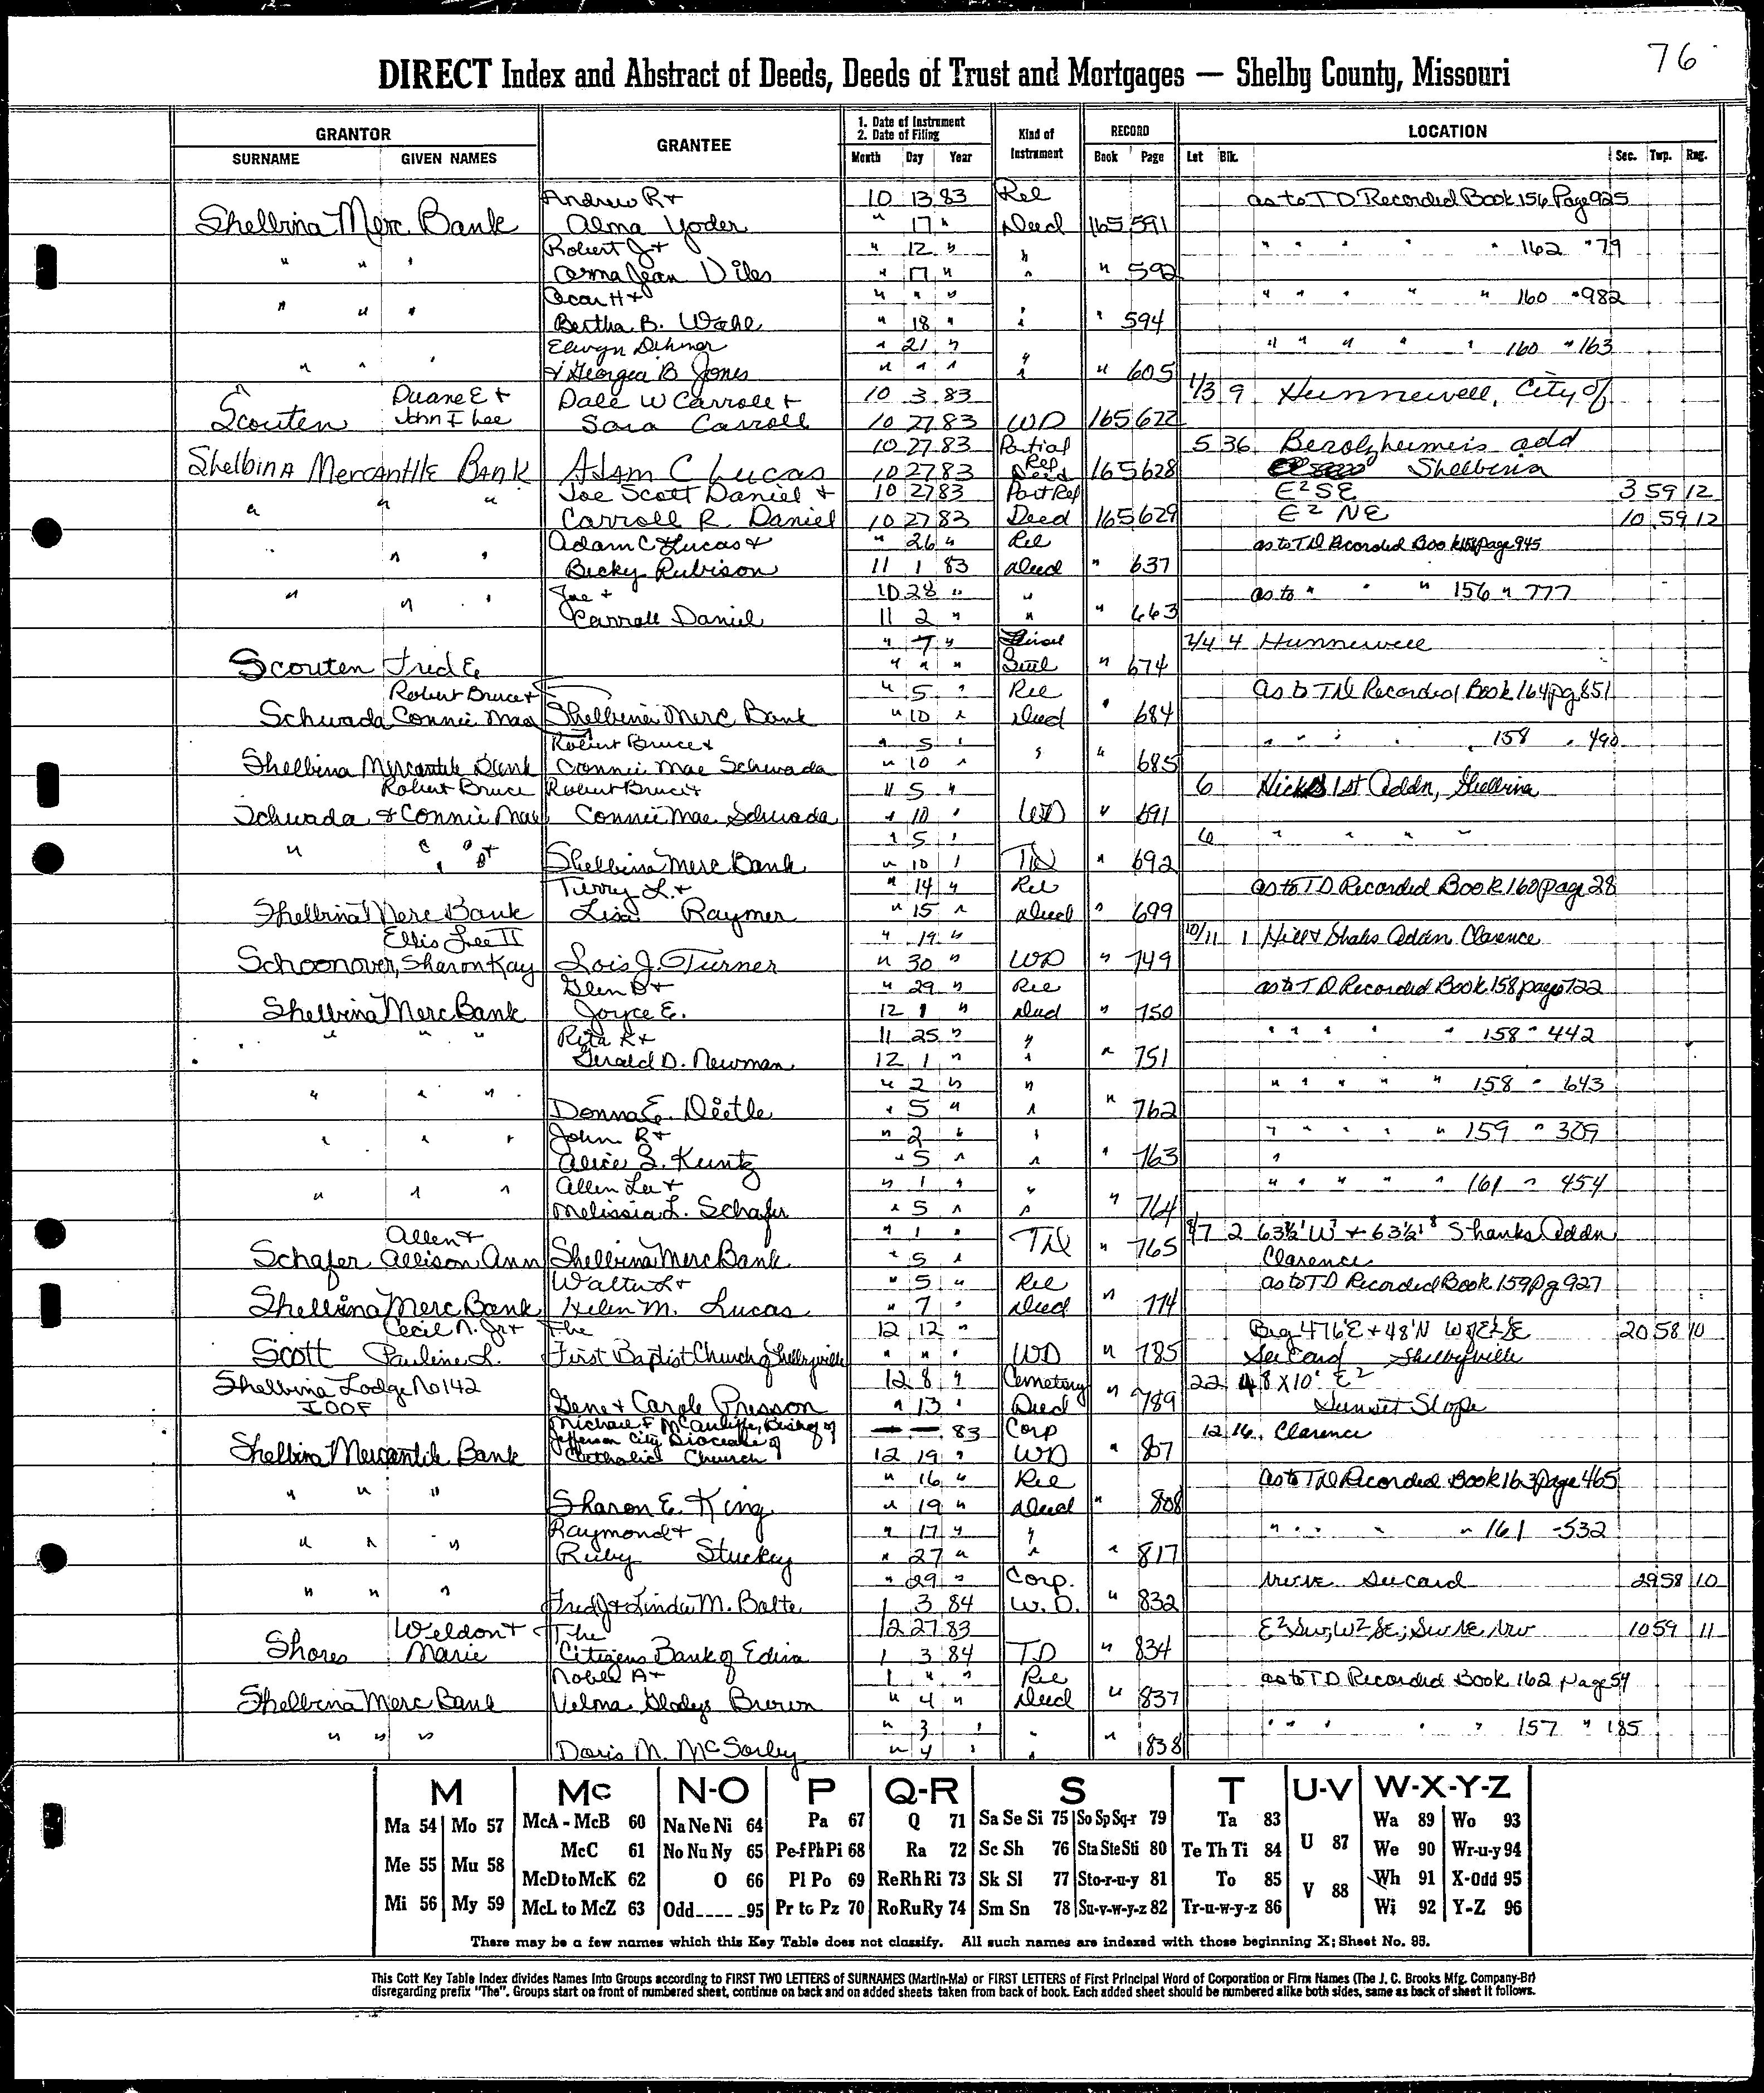 76
DIRECT Index and Abstract of Deeds, Deeds of Trust and Mortgages — Shelby County, Missouri
GRANTOR GRANTEE 1. Date of Instrument 2. Date of Filing Kind of Instrument RECORD LOCATION
SURNAME GIVEN NAMES Month Day Year Book Page Lot Blk. Sec. Twp. Rng.
Andrew R + 10 13 83 Rel as to T D Recorded Book 156 Page 925
Shelbina Merc Bank Alma Yoder " 17 " Deed 165 591
Robert J + " 12 " " " " " " " 162 " 79
" " " Jean Viles " 17 " " " 592
Oscar H + " " " " " " " " 160 " 982
" " " Bertha B. Wahl " 18 " " " 594
Elwyn Dehner " 21 " " " " " " " 160 " 163
" " " & Georgia B Jones " " " " " 605
Duane E + Dale W Carroll + 10 3 83 1/3 9 Hunnewell, City of
Scouten John F Lee Sara Carroll 10 27 83 WD 165 622
10 27 83 Partial 5 36 Berolzheimers add
Shelbina Mercantile Bank Adam C Lucas 10 27 83 Rel Deed 165 628 Shelbina
Joe Scott Daniel + 10 27 83 Part Rel E² SE 3 59 12
" " " Carroll R. Daniel 10 27 83 Deed 165 629 E² NE 10 59 12
Adam C Lucas + " 26 " Rel as to T D Recorded Book 156 page 945
" " " Becky Rubison 11 1 83 Deed " 637
Joe + 10 28 " " as to " " " 156 " 777
" " " Carroll Daniel 11 2 " " " 663
" 7 " Final 4 Hunnewell
Scouten Fred E " " " Setl " 674
Robert Bruce + " 5 " Rel as to T D Recorded Book 164 pg 851
Schwada Connie Mae Shelbina Merc Bank " 10 " Deed " 684
Robert Bruce + " 5 " " " " " " " 158 " 490
Shelbina Mercantile Bank Connie Mae Schwada " 10 " " 685
Robert Bruce Robert Bruce + 11 5 " 6 Hicks 1st Addn, Shelbina
Schwada & Connie Mae Connie Mae Schwada " 10 " WD " 691
" 5 " 6 " " " "
" " " Shelbina Merc Bank " 10 " TD " 692
Terry L. + " 14 " Rel as to T D Recorded Book 160 page 28
Shelbina Merc Bank Lisa Raymer " 15 " Deed " 699
Ellis Lee II " 19 " 10/11 1 Hill & Shaks Addn Clarence
Schoonover, Sharon Kay Lois J. Turner " 30 " WD " 749
Glen D + " 29 " Rel as to T D Recorded Book 158 page 722
Shelbina Merc Bank Joyce E. 12 1 " Deed " 750
Rita K + 11 25 " " " " " " " 158 " 442
" " " Gerald D. Newman 12 1 " " " 751
" 2 " " " " " " " 158 " 643
" " " Donna E. Dietle " 5 " " " 762
John R + " 2 " " " " " " " 159 " 309
" " " Alice S. Kuntz " 5 " " " 763
Allen Lee + " 1 " " " " " " " 161 " 454
" " " Melissia L. Schafer " 5 " " " 764
Allen + " 1 " TD " 765 2 Shanks Addn
Schafer Allison Ann Shelbina Merc Bank " 5 " Clarence
Walter L + " 5 " Rel as to T D Recorded Book 159 pg 927
Shelbina Merc Bank Helen M. Lucas " 7 " Deed " 774
Cecil N. Jr + The 12 12 " Beg 476'E + 48'N 20 58 10
Scott Pauline L. First Baptist Church of Shelbyville " " " WD " 785 See Card Shelbyville
Shelbina Lodge No 142 12 8 " Cemetery 22 48 X10' E²
IOOF Gene + Carole Presson " 13 " Deed " 789 Sunset Slope
Michael F McAuliffe, Bishop of — — 83 Corp 12 16 Clarence
Jefferson City Diocese of
Shelbina Mercantile Bank Catholic Church 12 19 " WD " 807
" 16 " Rel as to T D Recorded Book 163 page 465
" " " Sharon E. King " 19 " Deed " 808
Raymond + " 17 " " " " " " 161 " 532
" " " Ruby Stuckey " 27 " " " 817
" 29 " Corp. See card 29 58 10
" " " Fred J + Linda M. Balte 1 3 84 W.D. " 832
Weldon + The 12 27 83 E² SW; W² SE; 10 59 11
Shores Marie Citizens Bank of Edina 1 3 84 TD " 834
Nobel A + 1 " " Rel as to T D Recorded Book 162 page 54
Shelbina Merc Bank Velma Gladys Brown " 4 " Deed " 837
" 3 " " " " " " " 157 " 185
" " " Doris M. McSorley " 4 " " " 838
M Mc N-O P Q-R S T U-V W-X-Y-Z
Ma 54 Mo 57 McA - McB 60 Na Ne Ni 64 Pa 67 Q 71 Sa Se Si 75 So Sp Sq-r 79 Ta 83 U 87 Wa 89 Wo 93
Me 55 Mu 58 McC 61 No Nu Ny 65 Pe-f Ph Pi 68 Ra 72 Sc Sh 76 Sta Ste Sti 80 Te Th Ti 84 We 90 Wr-u-y 94
McD to McK 62 O 66 Pl Po 69 Re Rh Ri 73 Sk Sl 77 Sto-r-u-y 81 To 85 V 88 Wh 91 X-Odd 95
Mi 56 My 59 McL to McZ 63 Odd 95 Pr to Pz 70 Ro Ru Ry 74 Sm Sn 78 Su-v-w-y-z 82 Tr-u-w-y-z 86 Wi 92 Y-Z 96
There may be a few names which this Key Table does not classify. All such names are indexed with those beginning X; Sheet No. 95.
This Cott Key Table Index divides Names Into Groups according to FIRST TWO LETTERS of SURNAMES (Martin-Ma) or FIRST LETTERS of First Principal Word of Corporation or Firm Names (The J. C. Brooks Mfg. Company-Br)
disregarding prefix "The". Groups start on front of numbered sheet, continue on back and on added sheets taken from back of book. Each added sheet should be numbered alike both sides, same as back of sheet it follows.